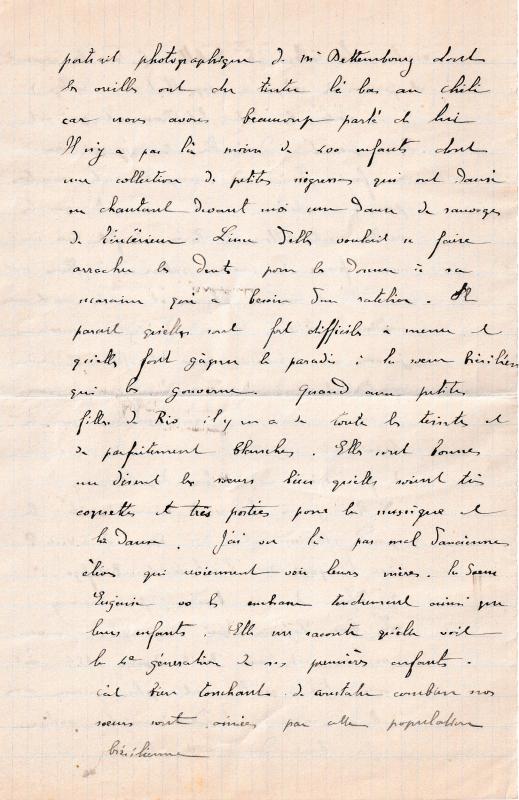 portrait photographique de Mr Bettembourg dont
les oreilles ont du tinter là bas au chili
car nous avons beaucoup parlé de lui
Il n'y a pas là moins de 200 enfants dont
une collection de petites négresses qui ont dansé
en chantant devant moi une danse de sauvages
de l'intérieur. L'une d'elles voulait se faire
arracher les dents pour les donner à sa
marraine qui a besoin d'un ratelier. Il
parait qu'elles sont fort difficiles à mener et
qu'elles font gagner le paradis à la sœur brésilienne
qui les gouverne. Quand aux petites
filles de Rio il y en a de toute les teintes et
de parfaitement blanches. Elles sont bonnes
me disent les sœurs bien qu'elles soient très
coquettes et très portées pour la musique et
la danse. J'ai vu là pas mal d'anciennes
élèves qui reviennent voir leurs mères. La Sœur
Eugénie les embrasse tendrement ainsi que
leurs enfants. Elle me raconte qu'elle voit
la 4e génération de ses premières enfants.
c'est bien touchant de constater combien nos
sœurs sont aimées par cette population
brésilienne